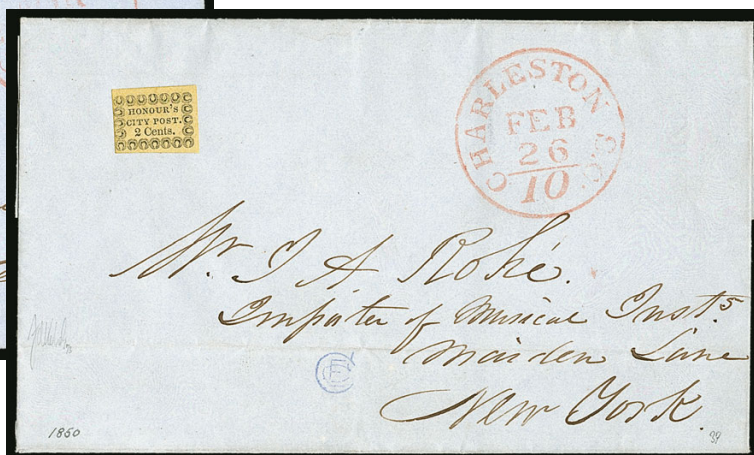 HONOUR'S
CITY POST.
2 Cents.
CHARLESTON S.C.
FEB
26
10
Mr. J A. Rohé.
Importer of Musical Insts
Maiden Lane
New York.
1850
39